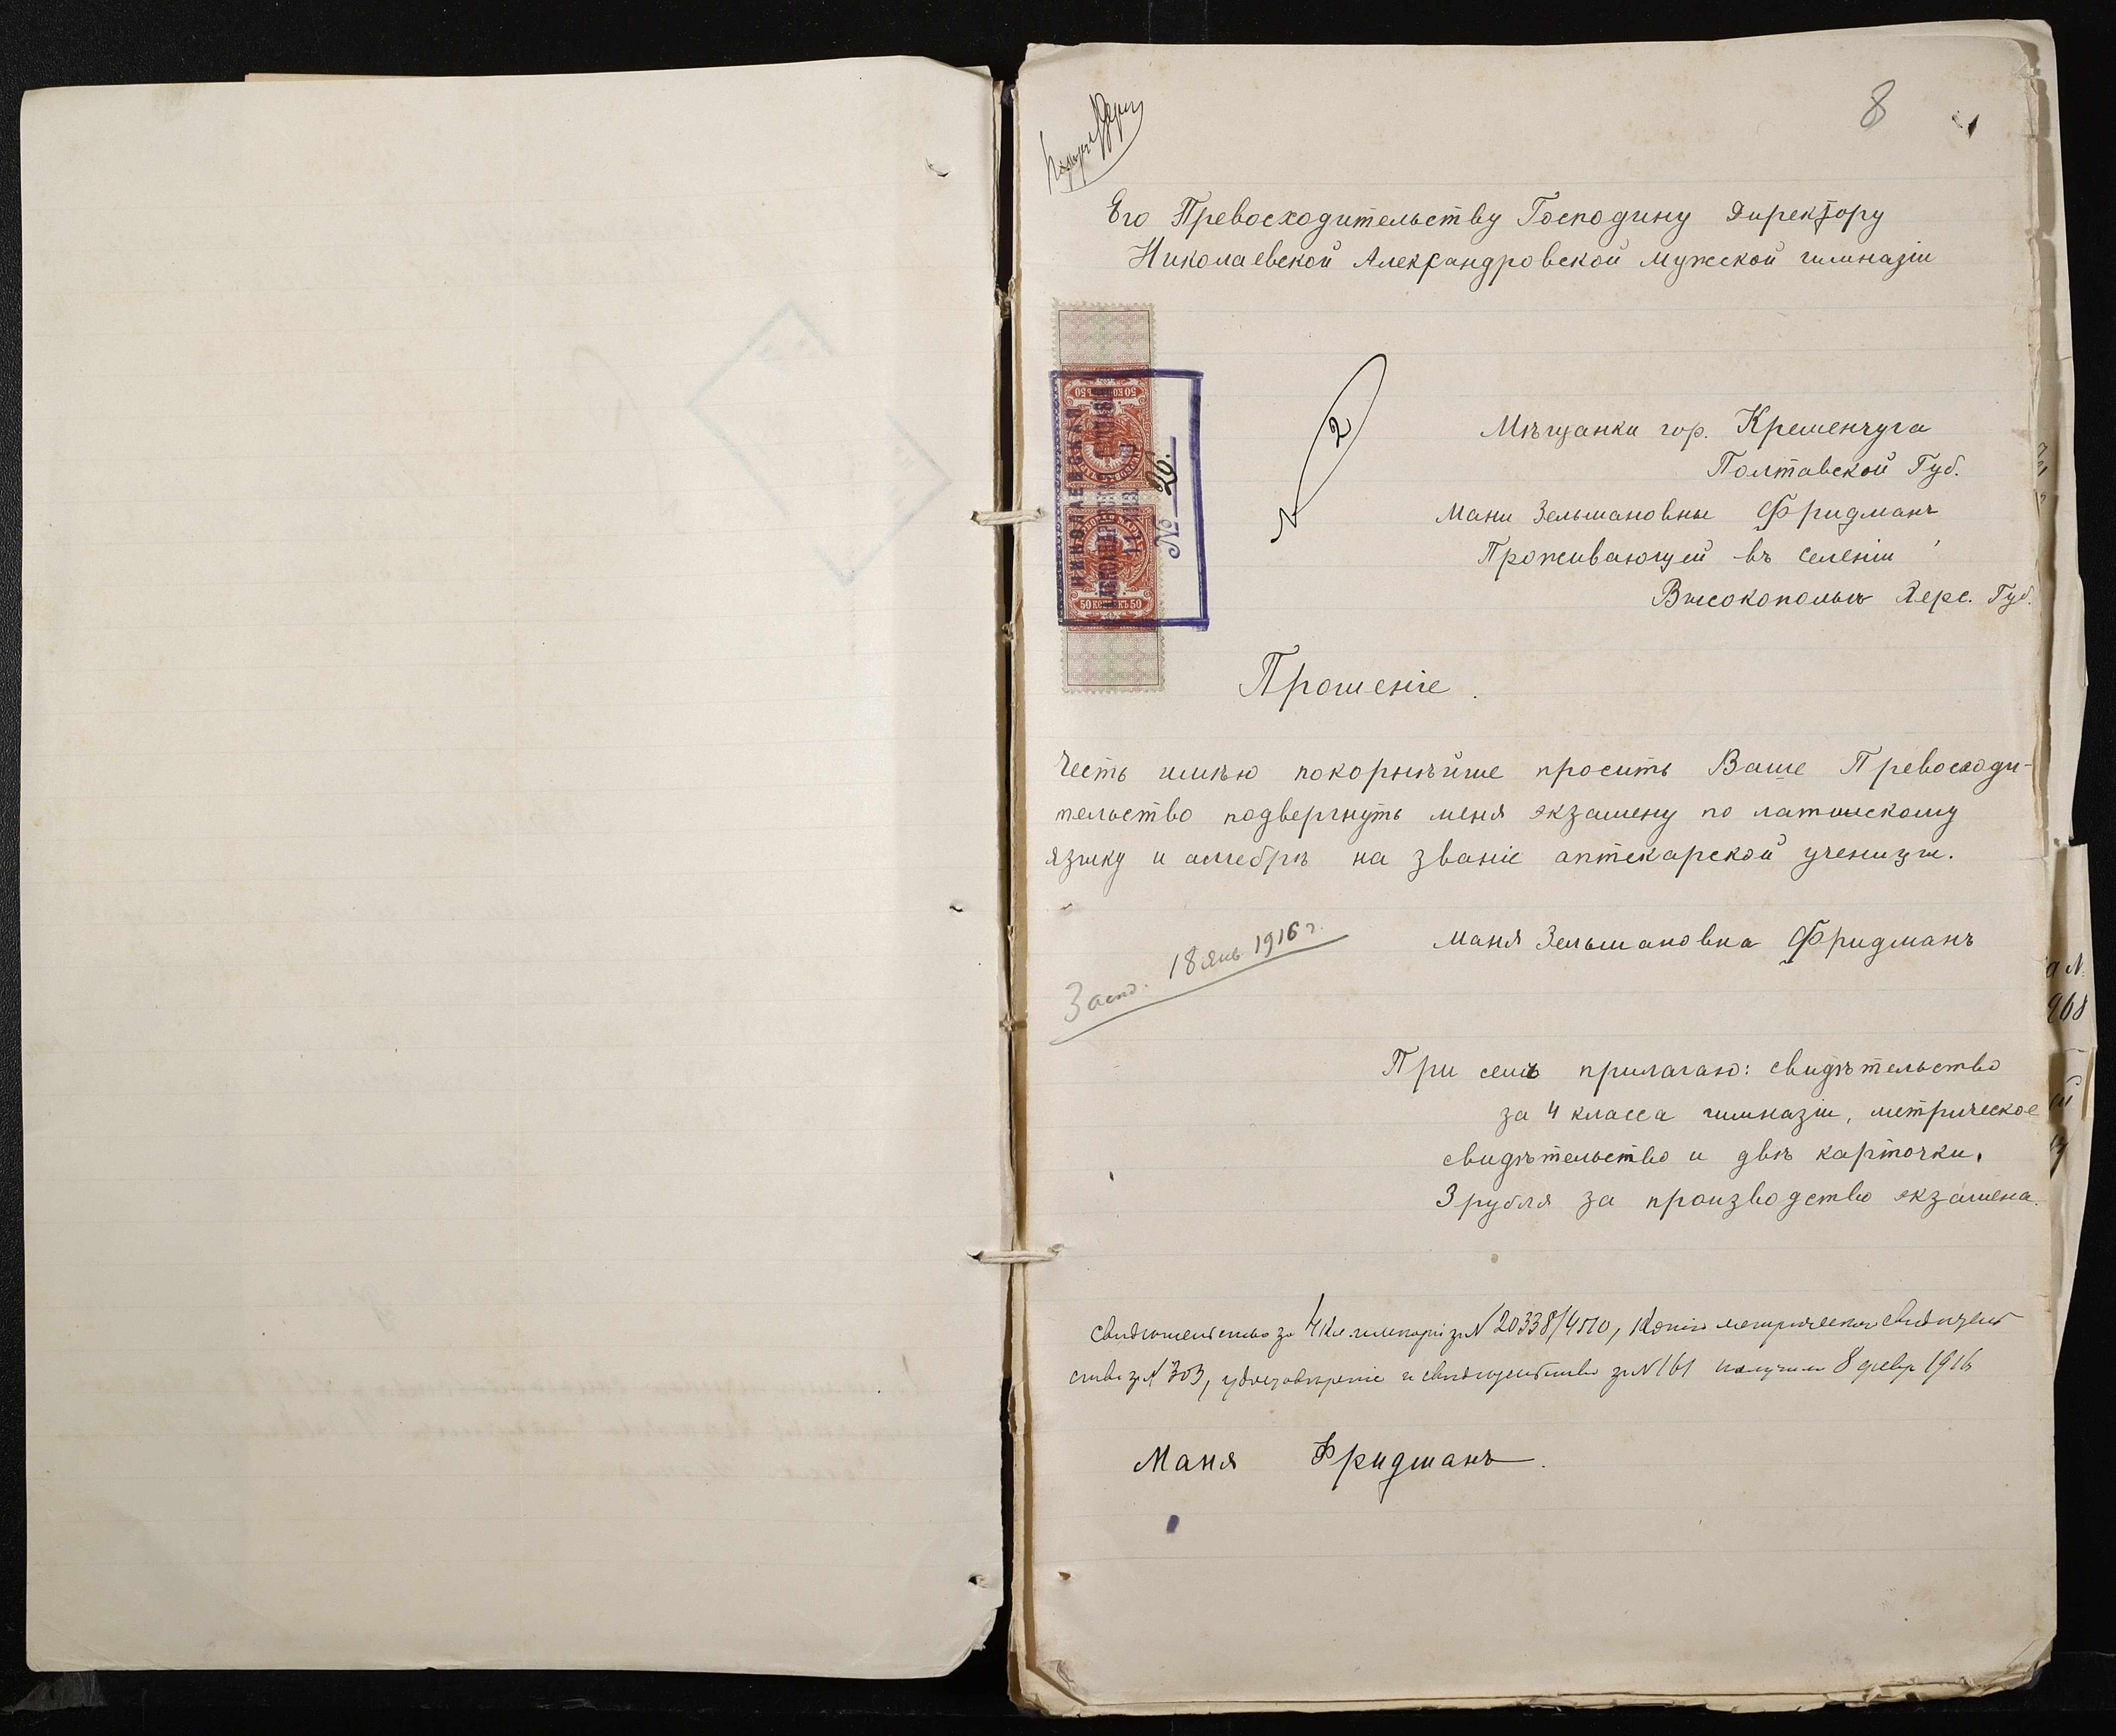 8
Его Превосходительству Господину Директору
Николаевской Александровской мужской гимназіи
50 КОП 50
НИКОЛАЕВСКАЯ
№ 26.
50 КОПѢЕКЪ 50
2
Мѣщанки гор. Кременчуга
Полтавской Губ.
Мани Зельмановны Фридманъ
Проживающей въ селеніи
Высокополье Херс. Губ.
Прошеніе.
Честь имѣю покорнѣйше просить Ваше Превосходи-
тельство подвергнуть меня экзамену по латинскому
языку и алгебрѣ на званіе аптекарской ученицы.
Маня Зельмановна Фридманъ
18 янв 1916 г.
При семъ прилагаю: свидѣтельство
за 4 класса гимназіи, метрическое
свидѣтельство и двѣ карточки.
3 рубля за производство экзамена.
Свидѣтельство за 4 кл. гимназіи за N 20338/4510, копію метрическаго свидѣтель
ства за N 303, удостовѣреніе и свидѣтельство за N 161 получила 8 февр 1916
Маня Фридманъ.